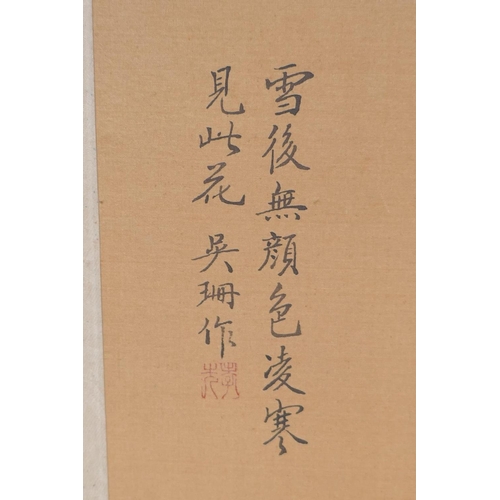 雪後無顔色凌寒
見此花 吳珊作